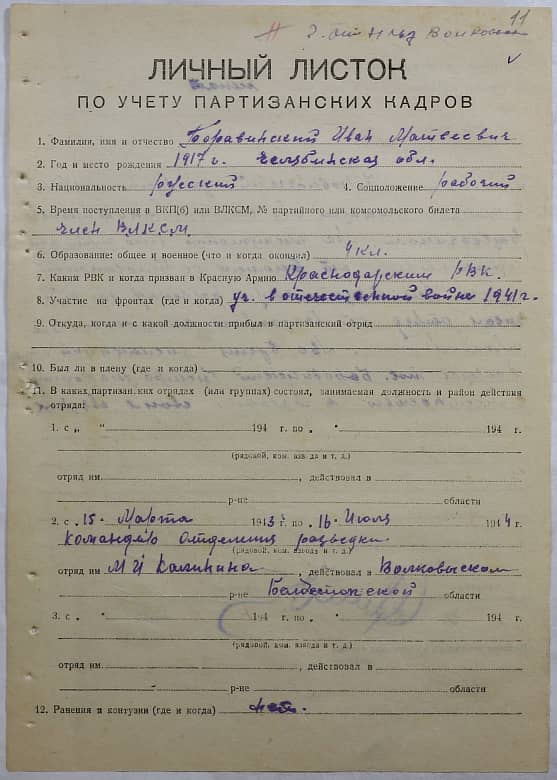 11
ЛИЧНЫЙ ЛИСТОК
ПО УЧЕТУ ПАРТИЗАНСКИХ КАДРОВ
1. Фамилия, имя и отчество Боравинский Иван Матвеевич
2. Год и место рождения 1917 г. Челябинская обл.
3. Национальность русский 4. Соцположение рабочий
5. Время поступления в ВКП(б) или ВЛКСМ, № партийного или комсомольского билета
член ВЛКСМ
6. Образование: общее и военное (что и когда окончил) 4 кл.
7. Каким РВК и когда призван в Красную Армию Краснодарским РВК.
8. Участие на фронтах (где и когда) уч. в отечественной войне 1941 г.
9. Откуда, когда и с какой должности прибыл в партизанский отряд
10. Был ли в плену (где и когда)
11. В каких партизанских отрядах (или группах) состоял, занимаемая должность и район действия
отряда:
1. с „ “ 194 г. по „ “ 194 г.
(рядовой, ком. взвода и т. д.)
отряд им. , действовал в
р-не области
2. с „15“ Марта 1943 г. по „16“ Июля 1944 г.
Командир отделения разведки
(рядовой, ком. взвода и т. д.)
отряд им. М И Калинина , действовал в Волковыском
р-не Белостокской области
3. с „ “ 194 г. по „ “ 194 г.
(рядовой, ком. взвода и т. д.)
отряд им. , действовал в
р-не области
12. Ранения и контузии (где и когда) нет.